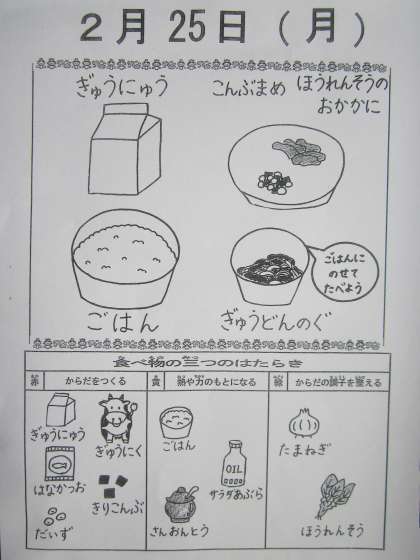 2月25日(月)
ぎゅうにゅう
こんぶまめ
ほうれんそうの
おかかに
ごはん
ぎゅうどんのぐ
ごはんに
のせて
たべよう
食べ物の三つのはたらき
赤 からだをつくる
黄 熱や力のもとになる
緑 からだの調子を整える
ぎゅうにゅう
ぎゅうにく
はなかつお
きりこんぶ
だいず
ごはん
OIL
サラダあぶら
さんおんとう
たまねぎ
ほうれんそう